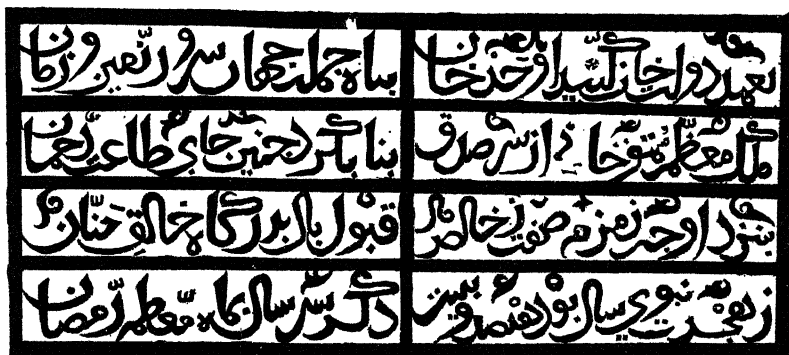 بعهد دولت خان کبیر اوحد خان پناه جمله جهان سرور زمین و زمان
ملک معظم از سر صدق بنا بکرد چنین جای طاعت رحمان
بنزد او چه زمزم صفت ز خالص مال قبول باد بدرگاه خالق حنان
ز هجرت نبوی سال بود هفتصد و بیست دگر سال بماه معظم رمضان